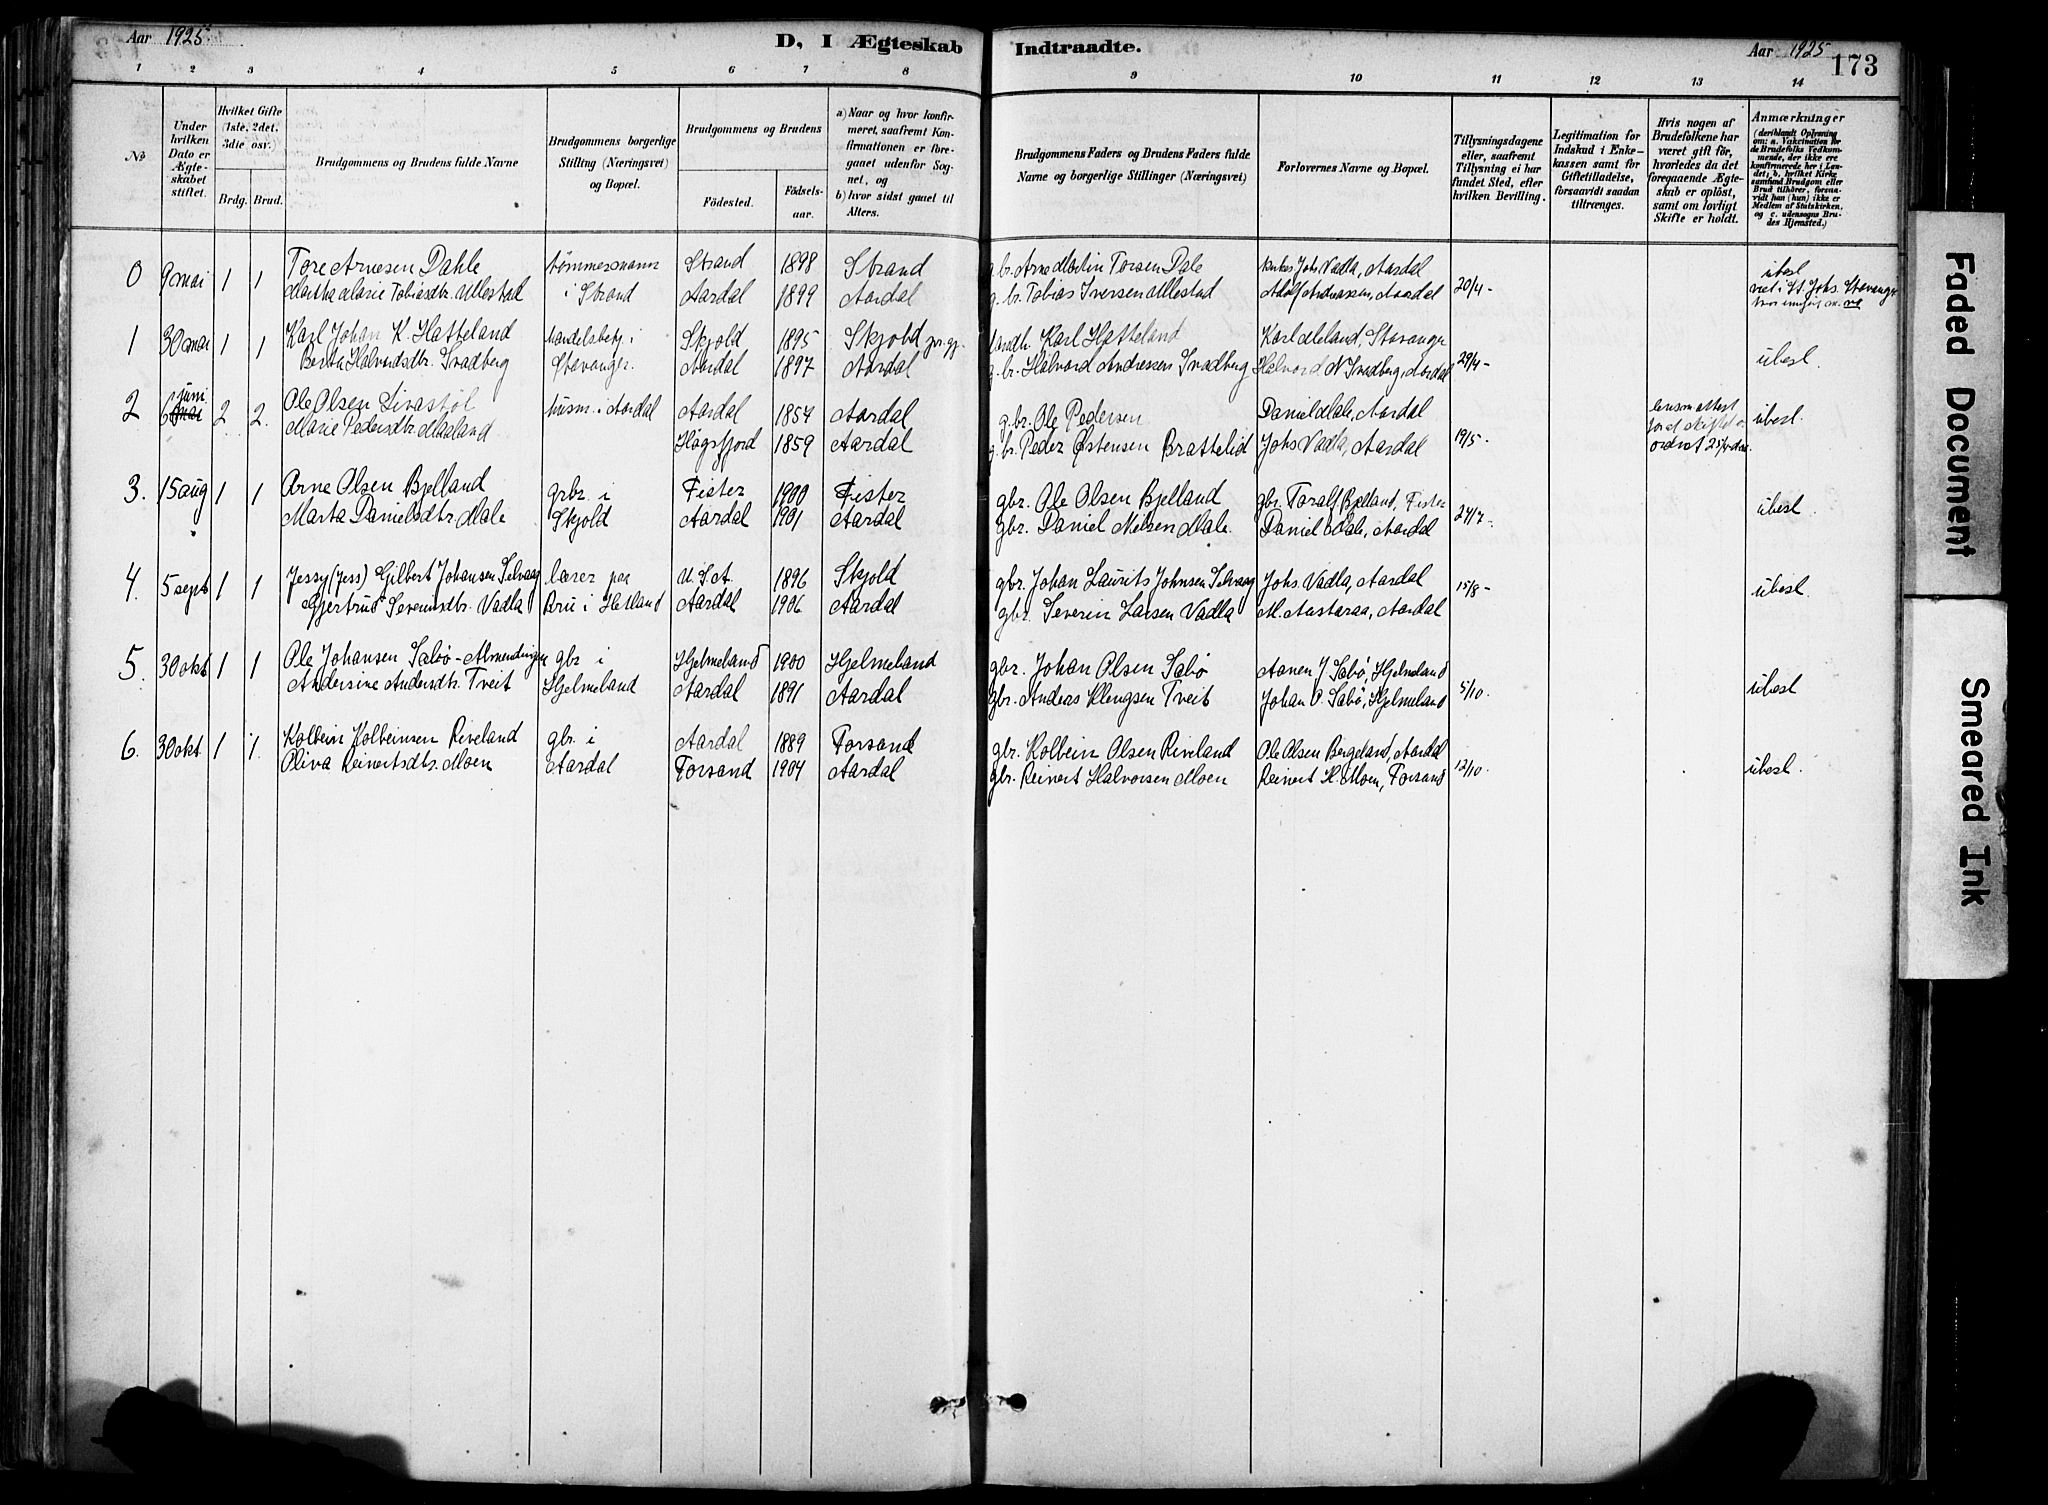 Aar 1925.
D, I Ægteskab Indtraadte.
Aar 1925
173
1 2 3 4 5 6 7 8 9 10 11 12 13 14
No
Under hvilken Dato er Ægte-skabet stiftet.
Hvilket Gifte (1ste, 2det, 3die osv.)
Brdg. Brud.
Brudgommens og Brudens fulde Navne
Brudgommens borgerlige Stilling (Næringsvei) og Bopæl.
Brudgommens og Brudens
Födested.
Födsels-aar.
a) Naar og hvor konfir-meret, saafremt Kon-firmationen er fore-gaaet udenfor Sog-net, og
b) hvor sidst gaaet til Alters.
Brudgommens Faders og Brudens Faders fulde Navne og borgerlige Stillinger (Næringsvei)
Forlovernes Navne og Bopæl.
Tillysningsdagene eller, saafremt Tillysning ei har fundet Sted, efter hvilken Bevilling.
Legitimation for Indskud i Enke-kassen samt for Giftetilladelse, forsaavidt saadan tiltrænges.
Hvis nogen af Brudefolkene har været gift för, hvorledes da det foregaaende Ægte-skab er oplöst, samt om lovligt Skifte er holdt.
Anmærkninger
(deriblandt Oplysning om: a. Vakcination for de Brudefolks Vedkom-mende, der ikke ere konfirmerede her i Lan-det; b. hvilket Kirke-samfund Brudgom eller Brud tilhörer, forsaa-vidt han (hun) ikke er Medlem af Statskirken, og c. udensogns Bru-des Hjemsted.)
0 9 mai 1 1 Tore Arnesen Dahle tömmermann Strand 1898 Strand g.br. Arne Martin Torsen Dale Johs Vadla, Aardal ubesl
Martha Marie Tobiasdtr. Ullestad i Strand Aardal 1899 Aardal g.br. Tobias Iversen Ullestad Adolf Andreassen, Aardal 20/4 - viet i St. Johs. Stavanger
1 30 mai 1 1 Karl Johan K. Hatteland handelsbetj. i Skjold 1895 Skjold Karl Hatteland Karl Meland, Stavanger
Berta Halvordsdtr. Svadberg Stavanger. Aardal 1897 Aardal g.br. Halvord Andreassen Svadberg Halvord N Svadberg, Aardal 29/4 - ubesl.
2 6 juni mai 2. 2. Ole Olsen Livastøl husm. i Aardal Aardal 1857 Aardal g.br. Ole Pedersen Daniel Male, Aardal ubesl.
Marie Pedersdtr. Mæland Høgsfjord 1859 Aardal g.br. Peder Østensen Brattelid Johs Vadla, Aardal 19/5.
3. 15 aug 1 1 Arne Olsen Bjelland grbr. i Fister 1900 Fister gbr. Ole Olsen Bjelland gbr. Toralf Bjelland, Fister
Marta Danielsdtr. Male Skjold Aardal 1901 Aardal gbr. Daniel Nelsen Male. Daniel Male, Aardal 24/7 - ubesl.
4. 5 sept 1 1 Jessy (Jess) Gilbert Johansen Selvaag lærer paa U.S.A. 1896 Skjold gbr. Johan Laurits Johnsen Selvaag Johs. Vadla, Aardal 15/8 - ubesl.
Gjertrud Severinsdtr. Vadla Bru i Hetland Aardal 1906 Aardal gbr. Severin Larsen Vadla M. Austaraa, Aardal
5. 30 okt 1 1 Ole Johansen Sæbø-Almendingen gbr i Hjelmeland 1900 Hjelmeland gbr. Johan Olsen Sæbø Aanen J. Sæbø, Hjelmeland
Andersine Andersdtr. Tveit Hjelmeland Aardal 1891 Aardal gbr. Andreas Klengsen Tveit Johan O. Sæbø, Hjelmeland 5/10. ubesl
6. 30 okt. 1 1. Kolbein Kolbeinsen Riveland gbr. i Aardal 1889 Forsand gbr. Kolbein Olsen Riveland Ole Olsen Bergeland, Aardal
Oliva Reinertsdtr. Moen Aardal Forsand 1904 Aardal gbr. Reinert Halvorsen Moen Reinert H. Moen, Forsand 12/10. ubesl.
Faded Document
Smeared Ink